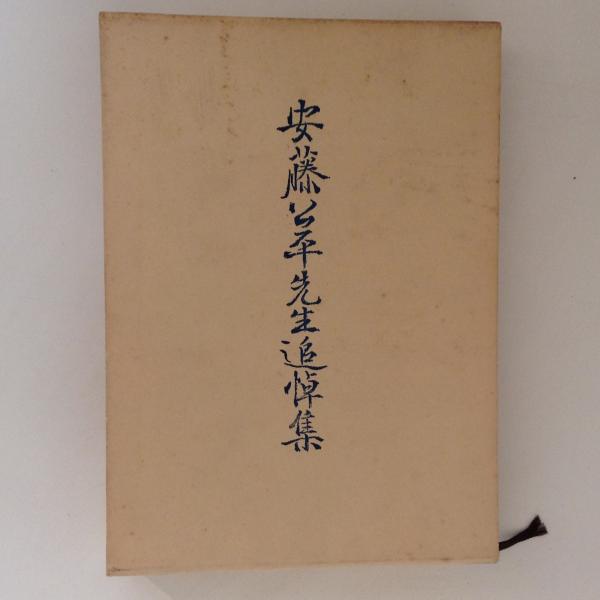 安藤公平先生追悼集